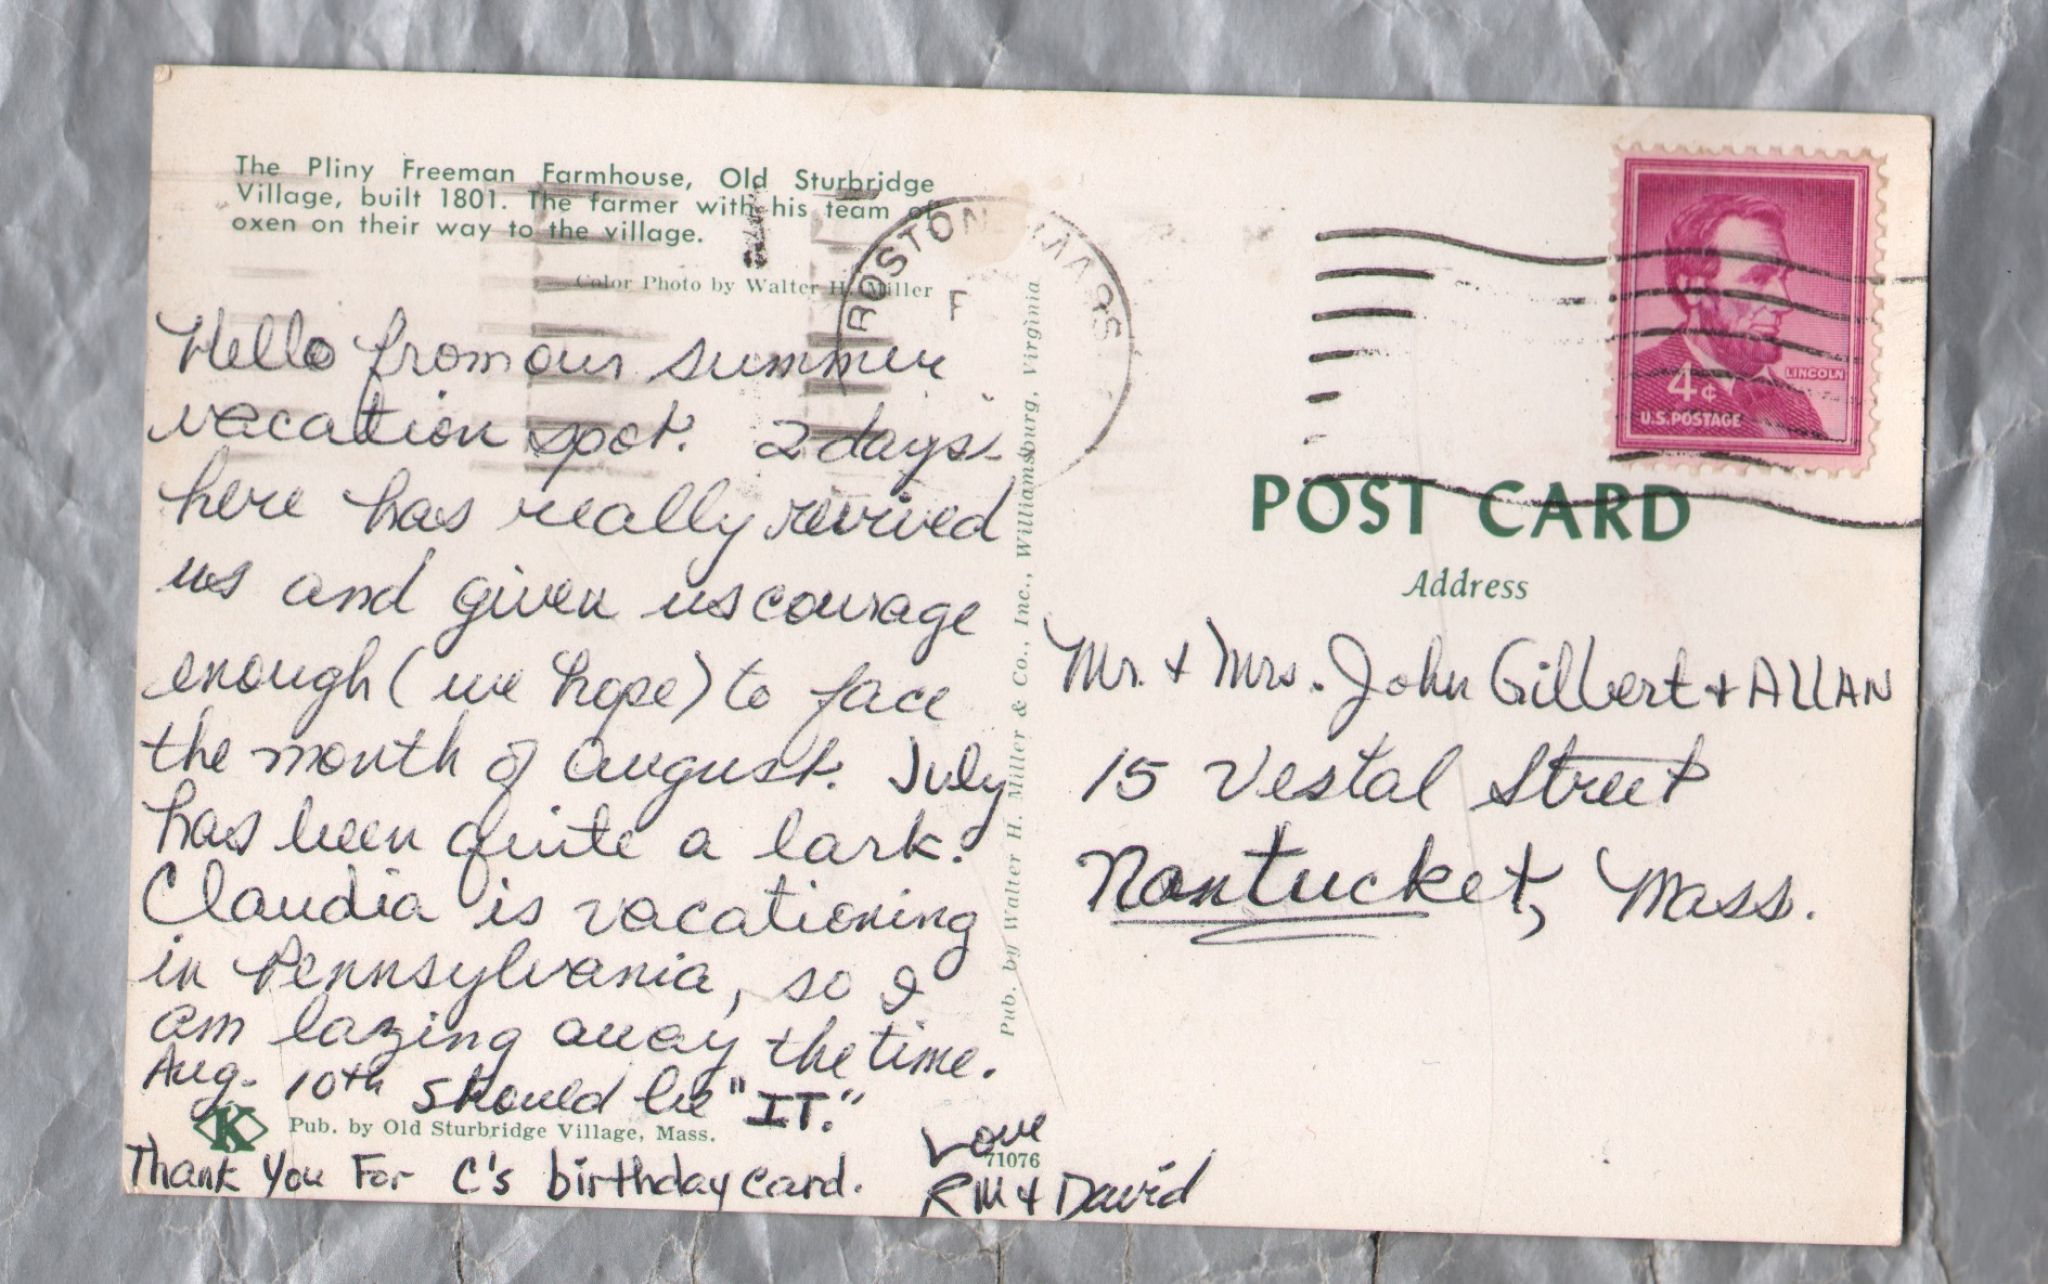 The Pliny Freeman Farmhouse, Old Sturbridge
Village, built 1801. The farmer with his team of
oxen on their way to the village.
Color Photo by Walter H. Miller
Hello from our summer
vacation spot. 2 days
here has really revived
us and given us courage
enough (we hope) to face
the month of August. July
has been quite a lark.
Claudia is vacationing
in Pennsylvania, so I
am lazing away the time.
Aug. 10th should be "IT."
K
Pub. by Old Sturbridge Village, Mass.
Thank You For C's birthday card.
Love
71076
RM + David
Pub. by Walter H. Miller & Co., Inc., Williamsburg, Virginia
BOSTON MASS
F
LINCOLN
4¢
U.S. POSTAGE
POST CARD
Address
Mr. + Mrs. John Gilbert + ALLAN
15 Vestal Street
Nantucket, Mass.